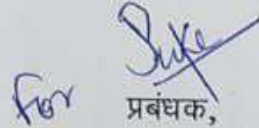 For
प्रबंधक,